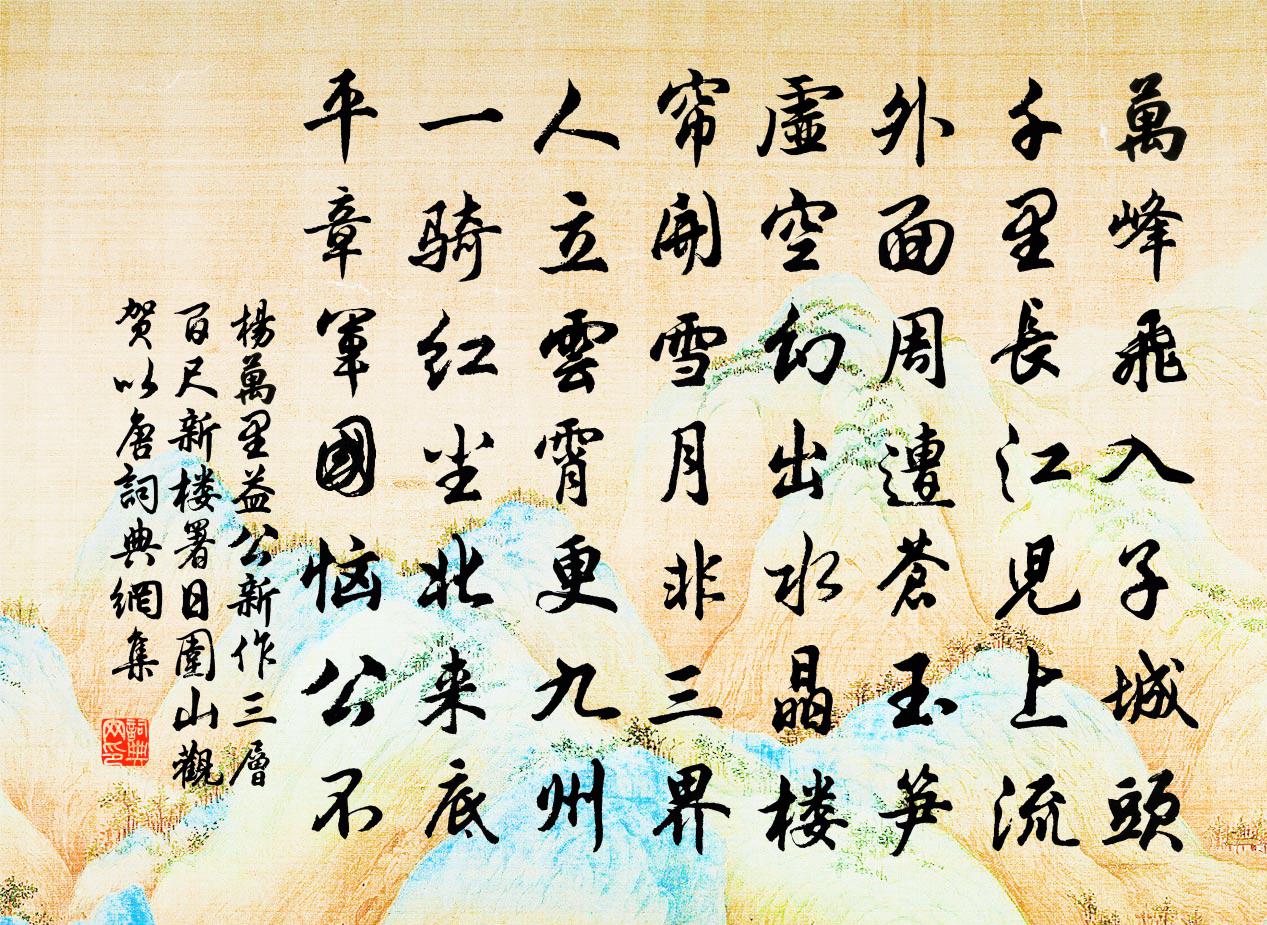 萬峰飛入子城頭
千里長江見上流
外面周遭蒼玉笋
虛空幻出水晶楼
帘開雪月非三界
人立雲霄更九州
一骑红尘北来底
平章軍國恼公不
楊萬里益公新作三層
百尺新楼署日圍山觀
贺以唐詞典網集
詞典网印